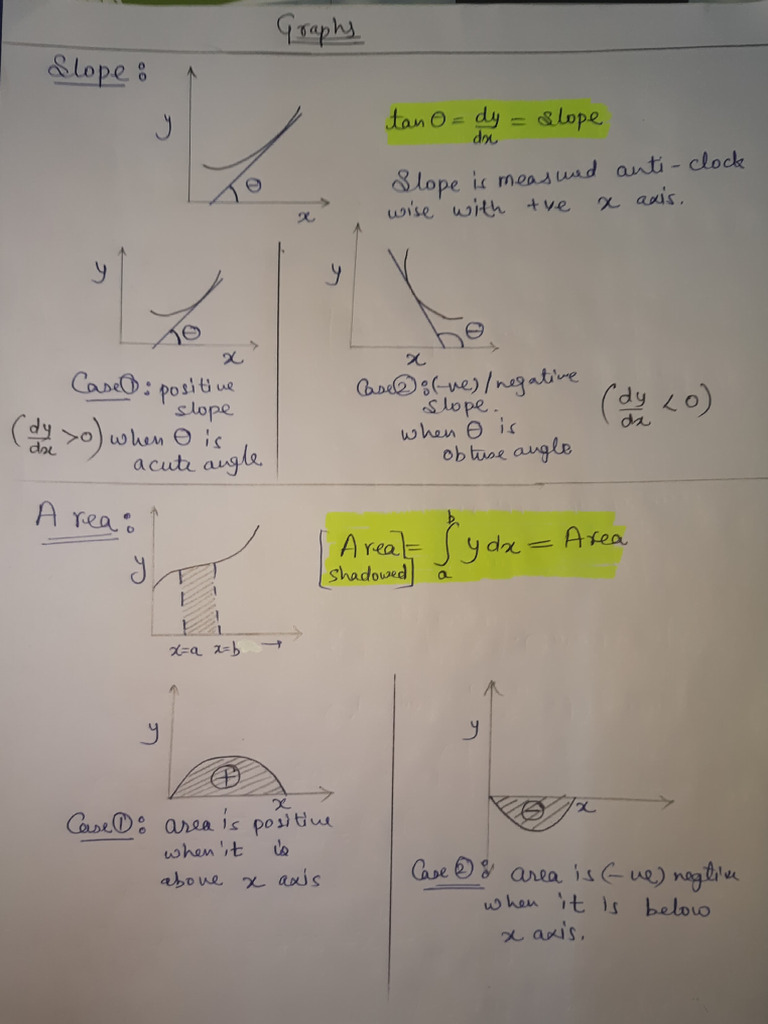 Graphs
Slope:
y
θ
x
tan θ = dy/dx = slope
Slope is measured anti-clock
wise with +ve x axis.
y
θ
x
Case①: positive
slope
(dy/dx >0) when θ is
acute angle
y
θ
x
Case②:(-ve)/negative
slope.
when θ is
obtuse angle
(dy/dx < 0)
Area:
y
x=a x=b →
[Area shadowed] = ∫ₐᵇ y dx = Area
y
+
x
Case①: area is positive
when it is
above x axis
y
−
x
Case②: area is (-ve) negtive
when it is below
x axis.